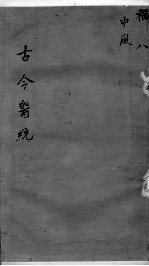 卷八
中風
古今醫統